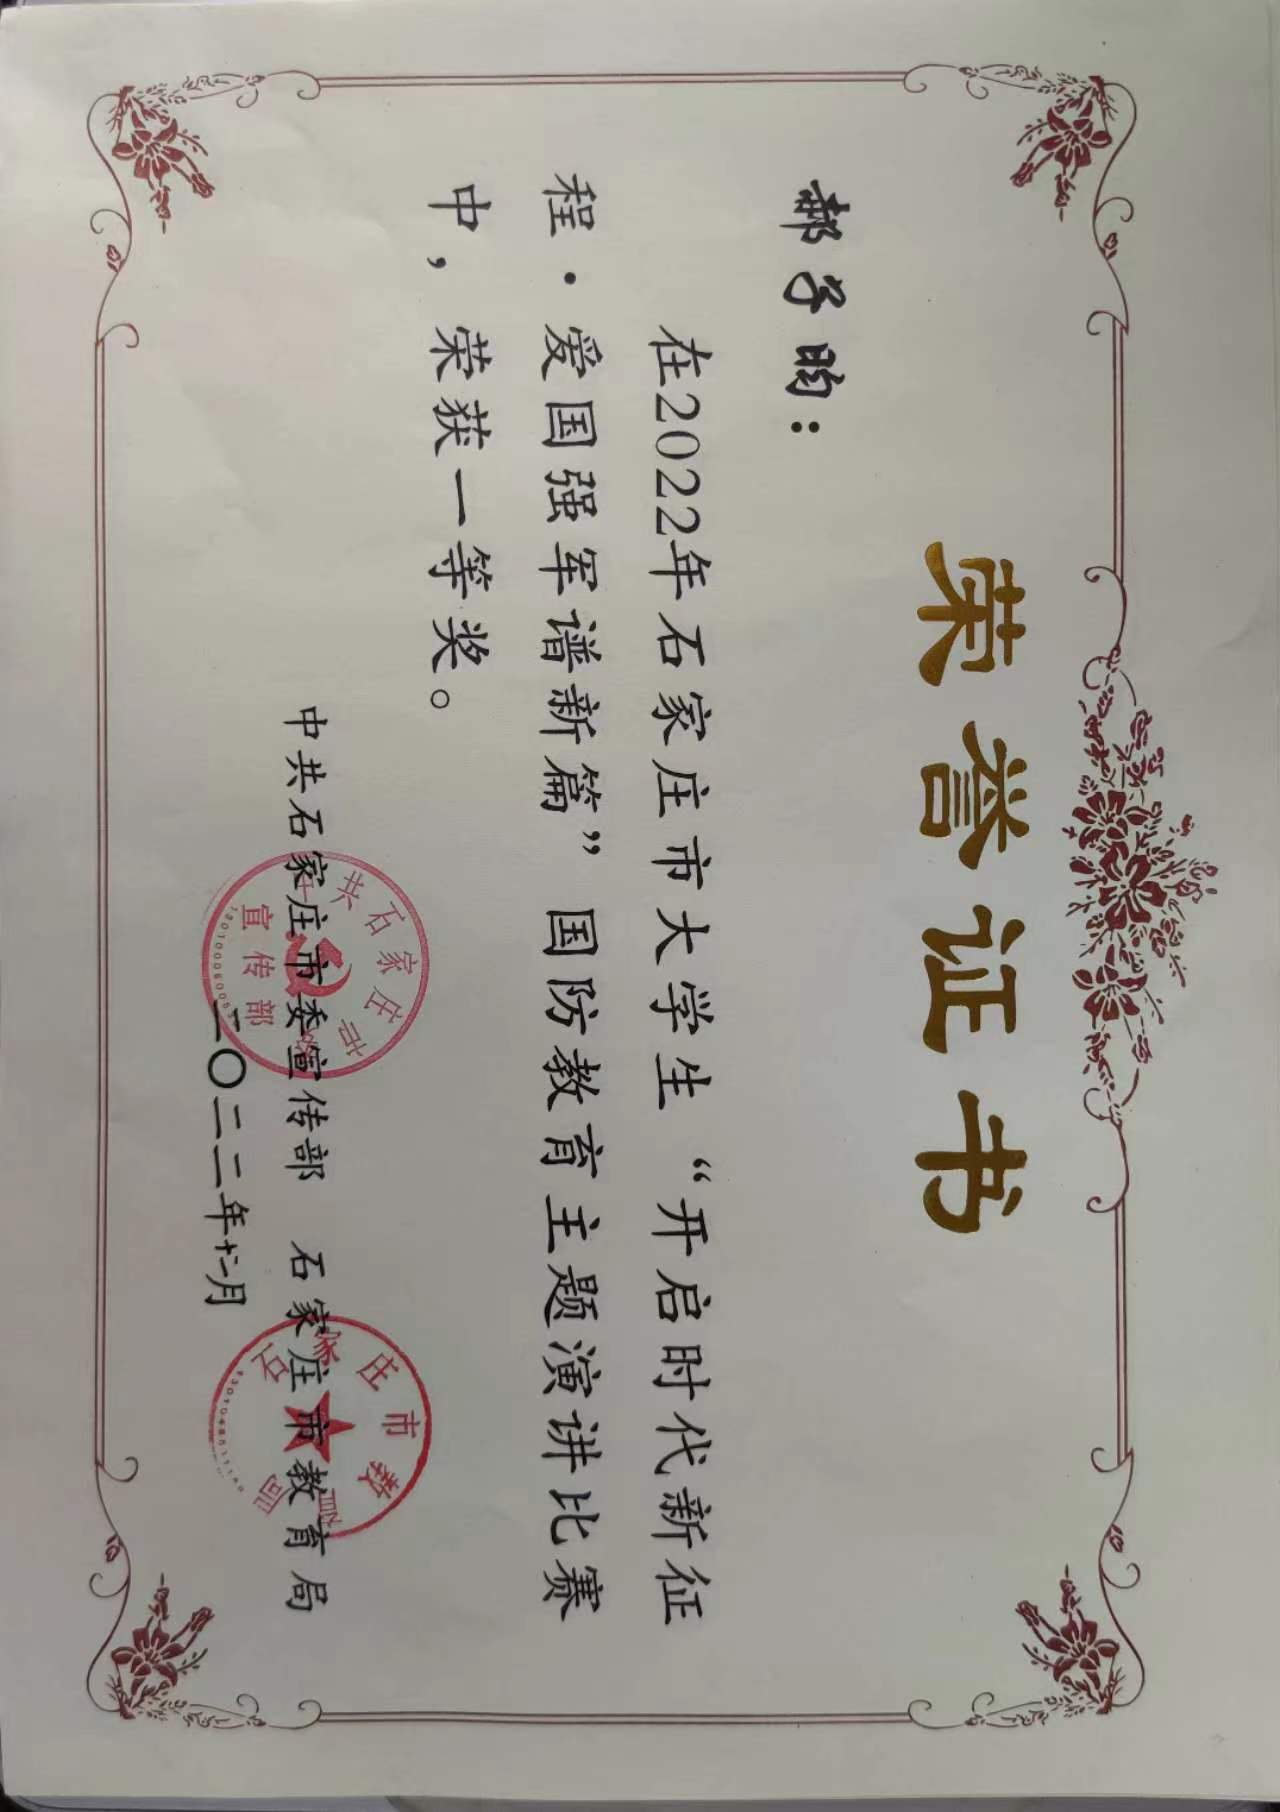 荣誉证书
郝子昀：
在2022年石家庄市大学生“开启时代新征
程·爱国强军谱新篇”国防教育主题演讲比赛
中，荣获一等奖。
中共石家庄市委宣传部 石家庄市教育局
二〇二二年十二月
中共石家庄市委
宣传部
石家庄市教育局